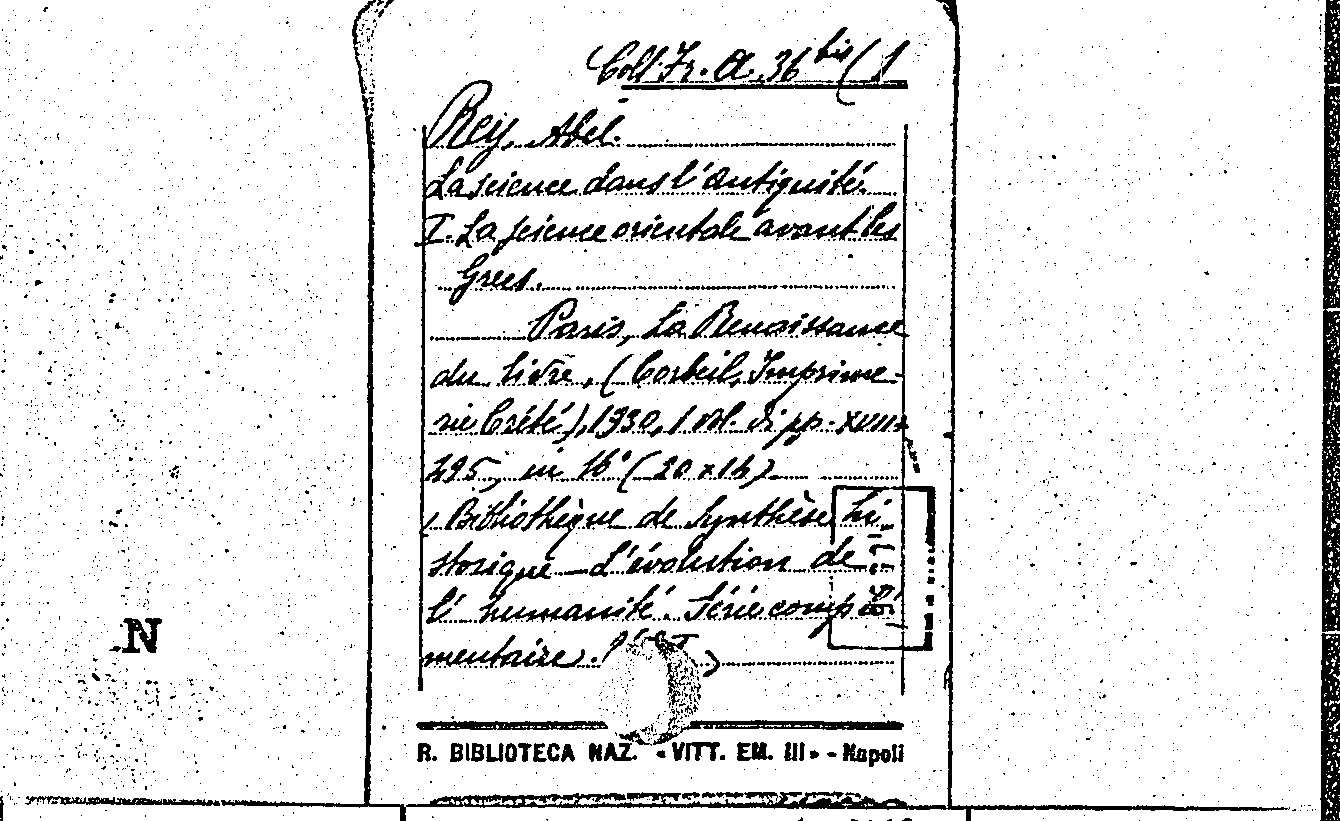 Coll. Fr. A. 36 bis (1
Rey, Abel.
La science dans l'Antiquité.
I. La science orientale avant les
Grecs.
Paris, La Renaissance
du Livre, (Corbeil, Imprime-
rie Crété), 1930, 1 vol. di pp. XVIII
495, in 16° (20 x 14)
(Bibliothèque de Synthèse hi
storique — L'évolution de
l'humanité. Série complé
mentaire.
N
R. BIBLIOTECA NAZ. «VITT. EM. III» - Napoli